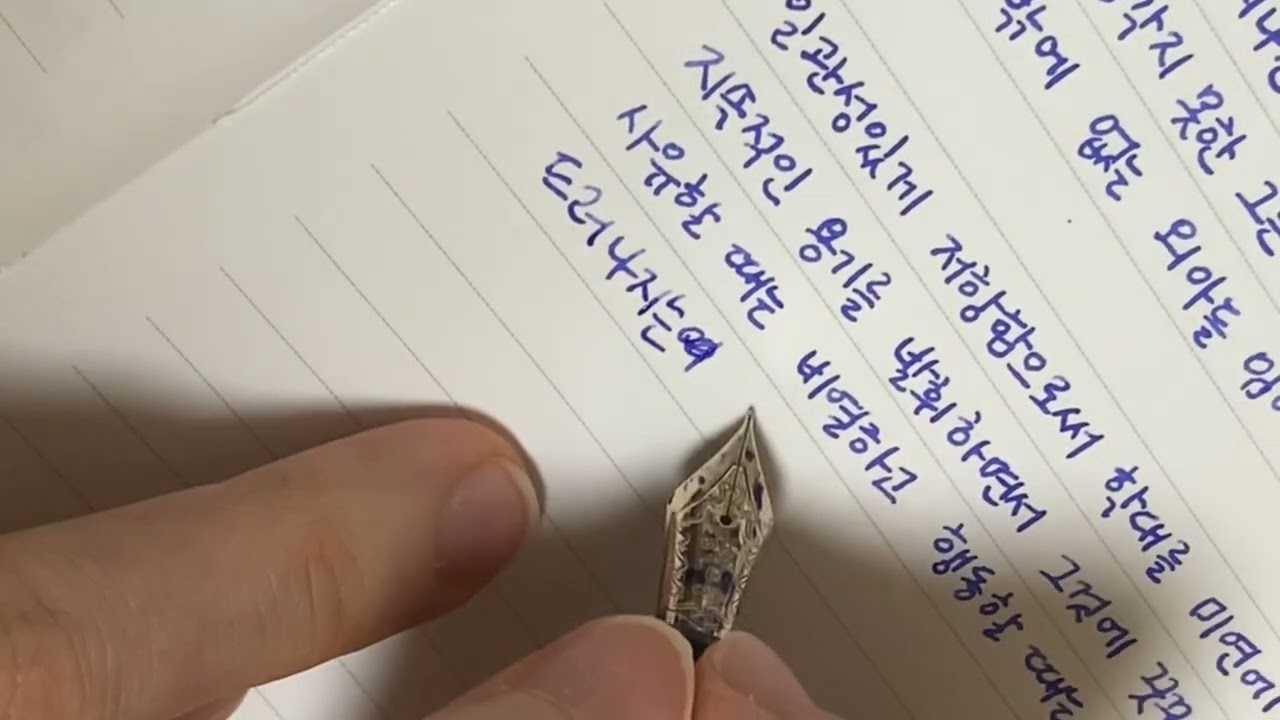 못한
밖에 없는 외아들
일관성있게 저항함으로써 학대를 미연에
지속적인 용기를 발휘하면서
사유할 때는 비열하고 행동할 때는
드러나지는